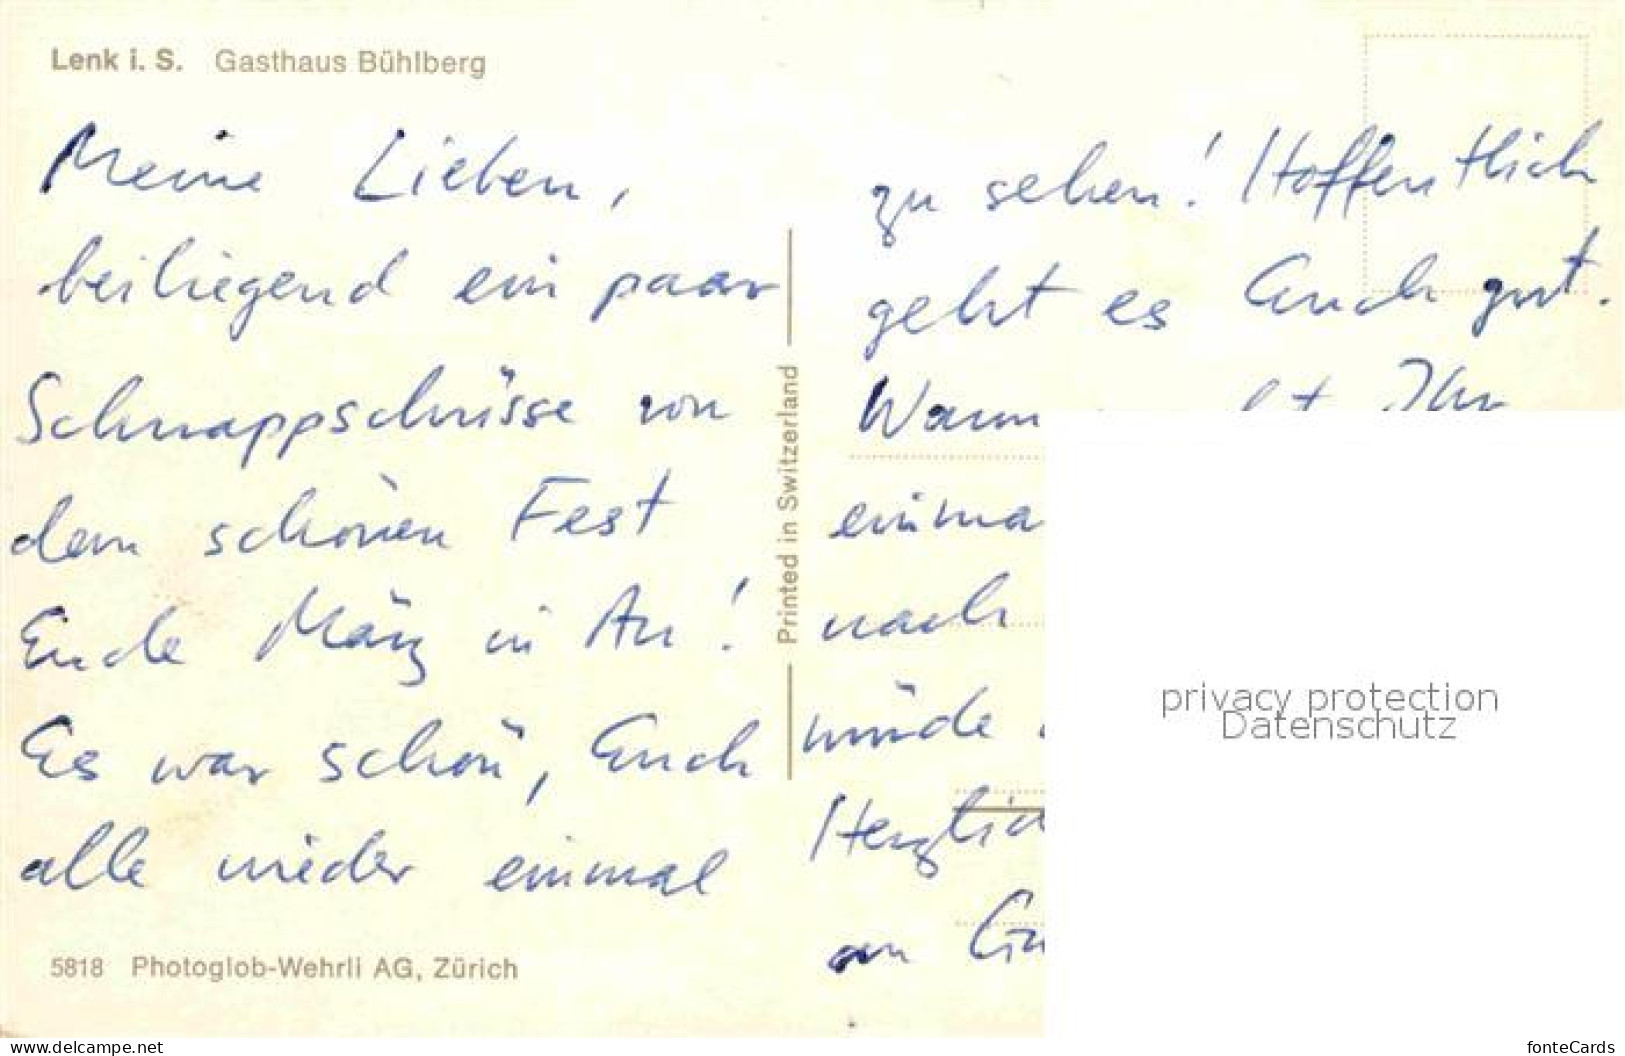 Lenk i. S. Gasthaus Bühlberg
Meine Lieben,
beiliegend ein paar
Schnappschüsse von
dem schönen Fest
Ende März in Au!
Es war schön, Euch
alle wieder einmal
5818 Photoglob-Wehrli AG, Zürich
Printed in Switzerland
zu sehen! Hoffentlich
geht es Euch gut.
Wann Ihr
einma
nach
würde
Herzlic
an
privacy protection
Datenschutz
www.delcampe.net
fonteCards